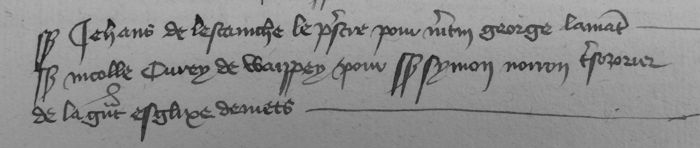 Jehans de lestanche le pstre pour mtin george lamant
nicolle Curey de Waippey pour symon noiron tsorier
de la gnt esglixe de mets